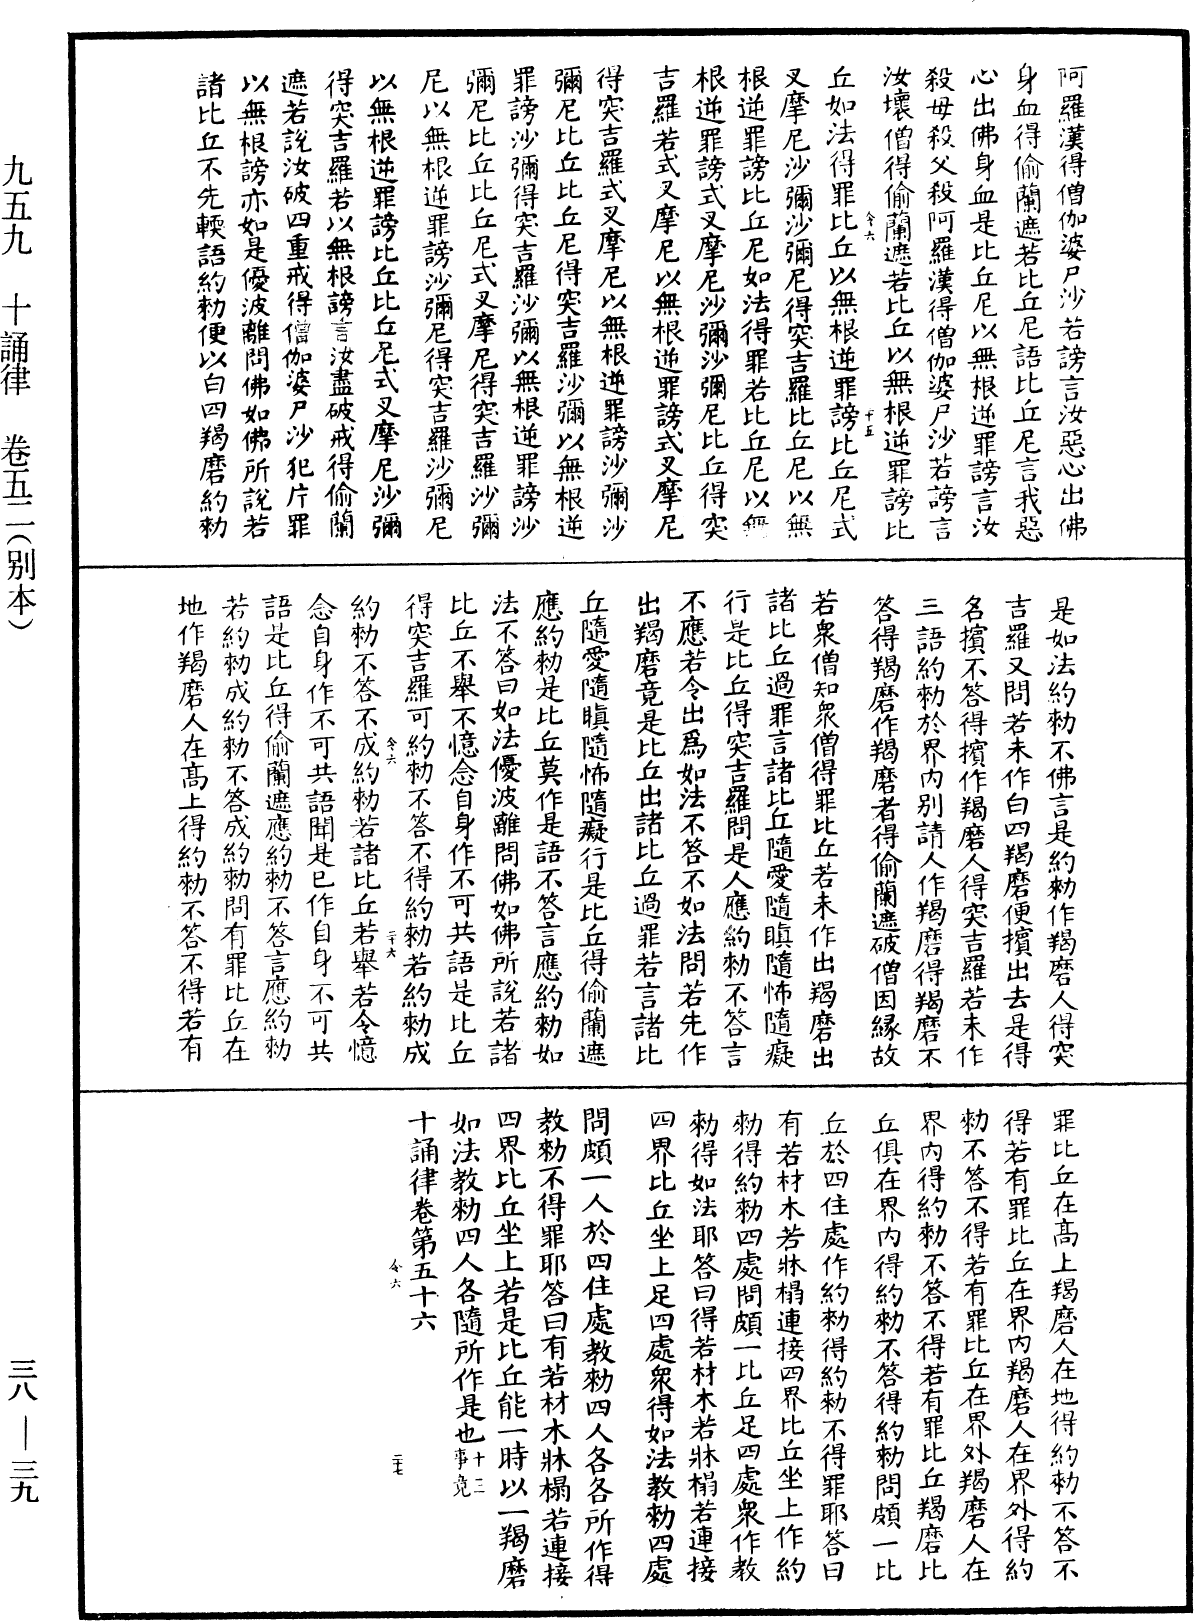 阿羅漢得僧伽婆尸沙若謗言汝惡心出佛
身血得偷蘭遮若比丘尼語比丘尼言我惡
心出佛身血是比丘尼以無根逆罪謗言汝
殺母殺父殺阿羅漢得僧伽婆尸沙若謗言
汝壞僧得偷蘭遮若比丘以無根逆罪謗比
丘如法得罪比丘以無根逆罪謗比丘尼式
叉摩尼沙彌沙彌尼得突吉羅比丘尼以無
根逆罪謗比丘尼如法得罪若比丘尼以無
根逆罪謗式叉摩尼沙彌沙彌尼比丘得突
吉羅若式叉摩尼以無根逆罪謗式叉摩尼
得突吉羅式叉摩尼以無根逆罪謗沙彌沙
彌尼比丘比丘尼得突吉羅沙彌以無根逆
罪謗沙彌得突吉羅沙彌以無根逆罪謗沙
彌尼比丘比丘尼式叉摩尼得突吉羅沙彌
尼以無根逆罪謗沙彌尼得突吉羅沙彌尼
以無根逆罪謗比丘比丘尼式叉摩尼沙彌
得突吉羅若以無根謗言汝盡破戒得偷蘭
遮若說汝破四重戒得僧伽婆尸沙犯片罪
以無根謗亦如是優波離問佛如佛所說若
諸比丘不先輭語約勑便以白四羯磨約勑
令六
十五
是如法約勑不佛言是約勑作羯磨人得突
吉羅又問若未作白四羯磨便擯出去是得
名擯不答得擯作羯磨人得突吉羅若未作
三語約勑於界內別請人作羯磨得羯磨不
答得羯磨作羯磨者得偷蘭遮破僧因緣故
若眾僧知眾僧得罪比丘若未作出羯磨出
諸比丘過罪言諸比丘隨愛隨瞋隨怖隨癡
行是比丘得突吉羅問是人應約勑不答言
不應若令出爲如法不答不如法問若先作
出羯磨竟是比丘出諸比丘過罪若言諸比
丘隨愛隨瞋隨怖隨癡行是比丘得偷蘭遮
應約勑是比丘莫作是語不答言應約勑如
法不答曰如法優波離問佛如佛所說若諸
比丘不舉不憶念自身作不可共語是比丘
得突吉羅可約勑不答不得約勑若約勑成
約勑不答不成約勑若諸比丘若舉若令憶
念自身作不可共語聞是已作自身不可共
語是比丘得偷蘭遮應約勑不答言應約勑
若約勑成約勑不答成約勑問有罪比丘在
地作羯磨人在高上得約勑不答不得若有
令六
二十六
罪比丘在高上羯磨人在地得約勑不答不
得若有罪比丘在界內羯磨人在界外得約
勑不答不得若有罪比丘在界外羯磨人在
界內得約勑不答不得若有罪比丘羯磨比
丘俱在界內得約勑不答得約勑問頗一比
丘於四住處作約勑得約勑不得罪耶答曰
有若材木若牀榻連接四界比丘坐上作約
勑得約勑四處問頗一比丘足四處眾作教
勑得如法耶答曰得若材木若牀榻若連接
四界比丘坐上足四處眾得如法教勑四處
問頗一人於四住處教勑四人各各所作得
教勑不得罪耶答曰有若材木牀榻若連接
四界比丘坐上若是比丘能一時以一羯磨
如法教勑四人各隨所作是也十三事竟
十誦律卷第五十六
令六
二七
九五九 十誦律 卷五二（別本）
三八 — 三九